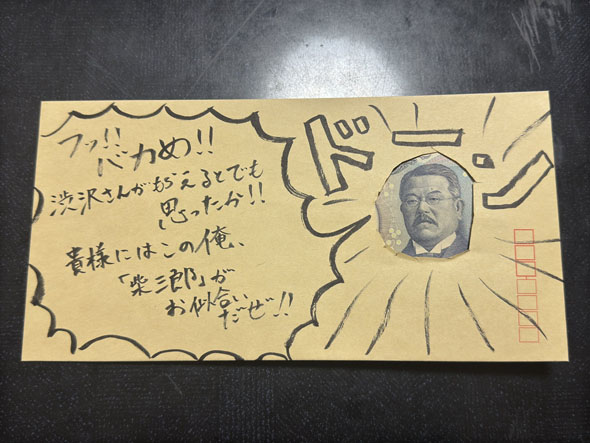 フッ!!
バカめ!!
渋沢さんがもらえるとでも
思ったか!!
貴様にはこの俺、
「柴三郎」が
お似合い
だぜ!!
ドーン